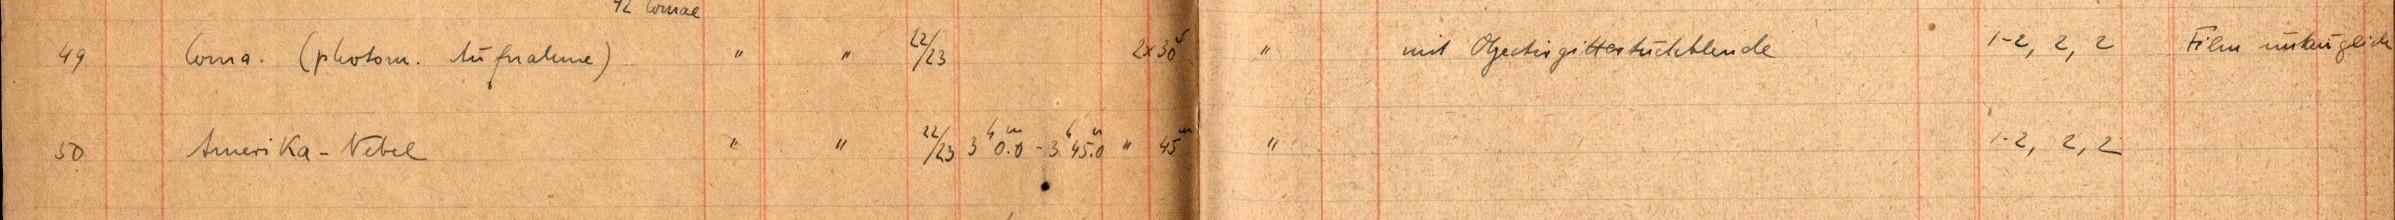 42 Comae
49 Coma. (photom. Aufnahme) " " 22/23 2x30s " mit Objectivgitter 1-2, 2, 2 Film untauglich
50 Amerika-Nebel " " 22/23 3h 0.m0 - 3h 45.m0 " 45m " 1-2, 2, 2